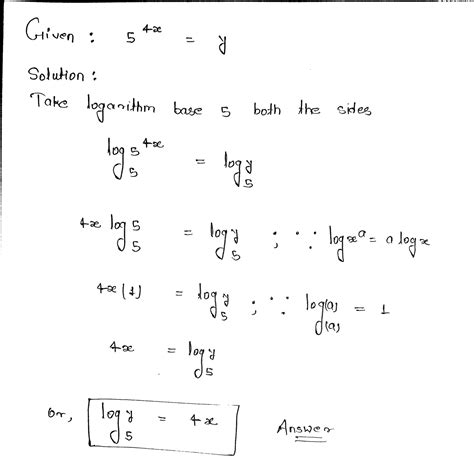 Given : 5^{4x} = y
Solution :
Take logarithm base 5 both the sides
log_5 5^{4x} = log_5 y
4x log_5 5 = log_5 y ; ∵ log x^a = a log x
4x (1) = log_5 y ; ∵ log_{(a)} (a) = 1
4x = log_5 y
or, log_5 y = 4x Answer